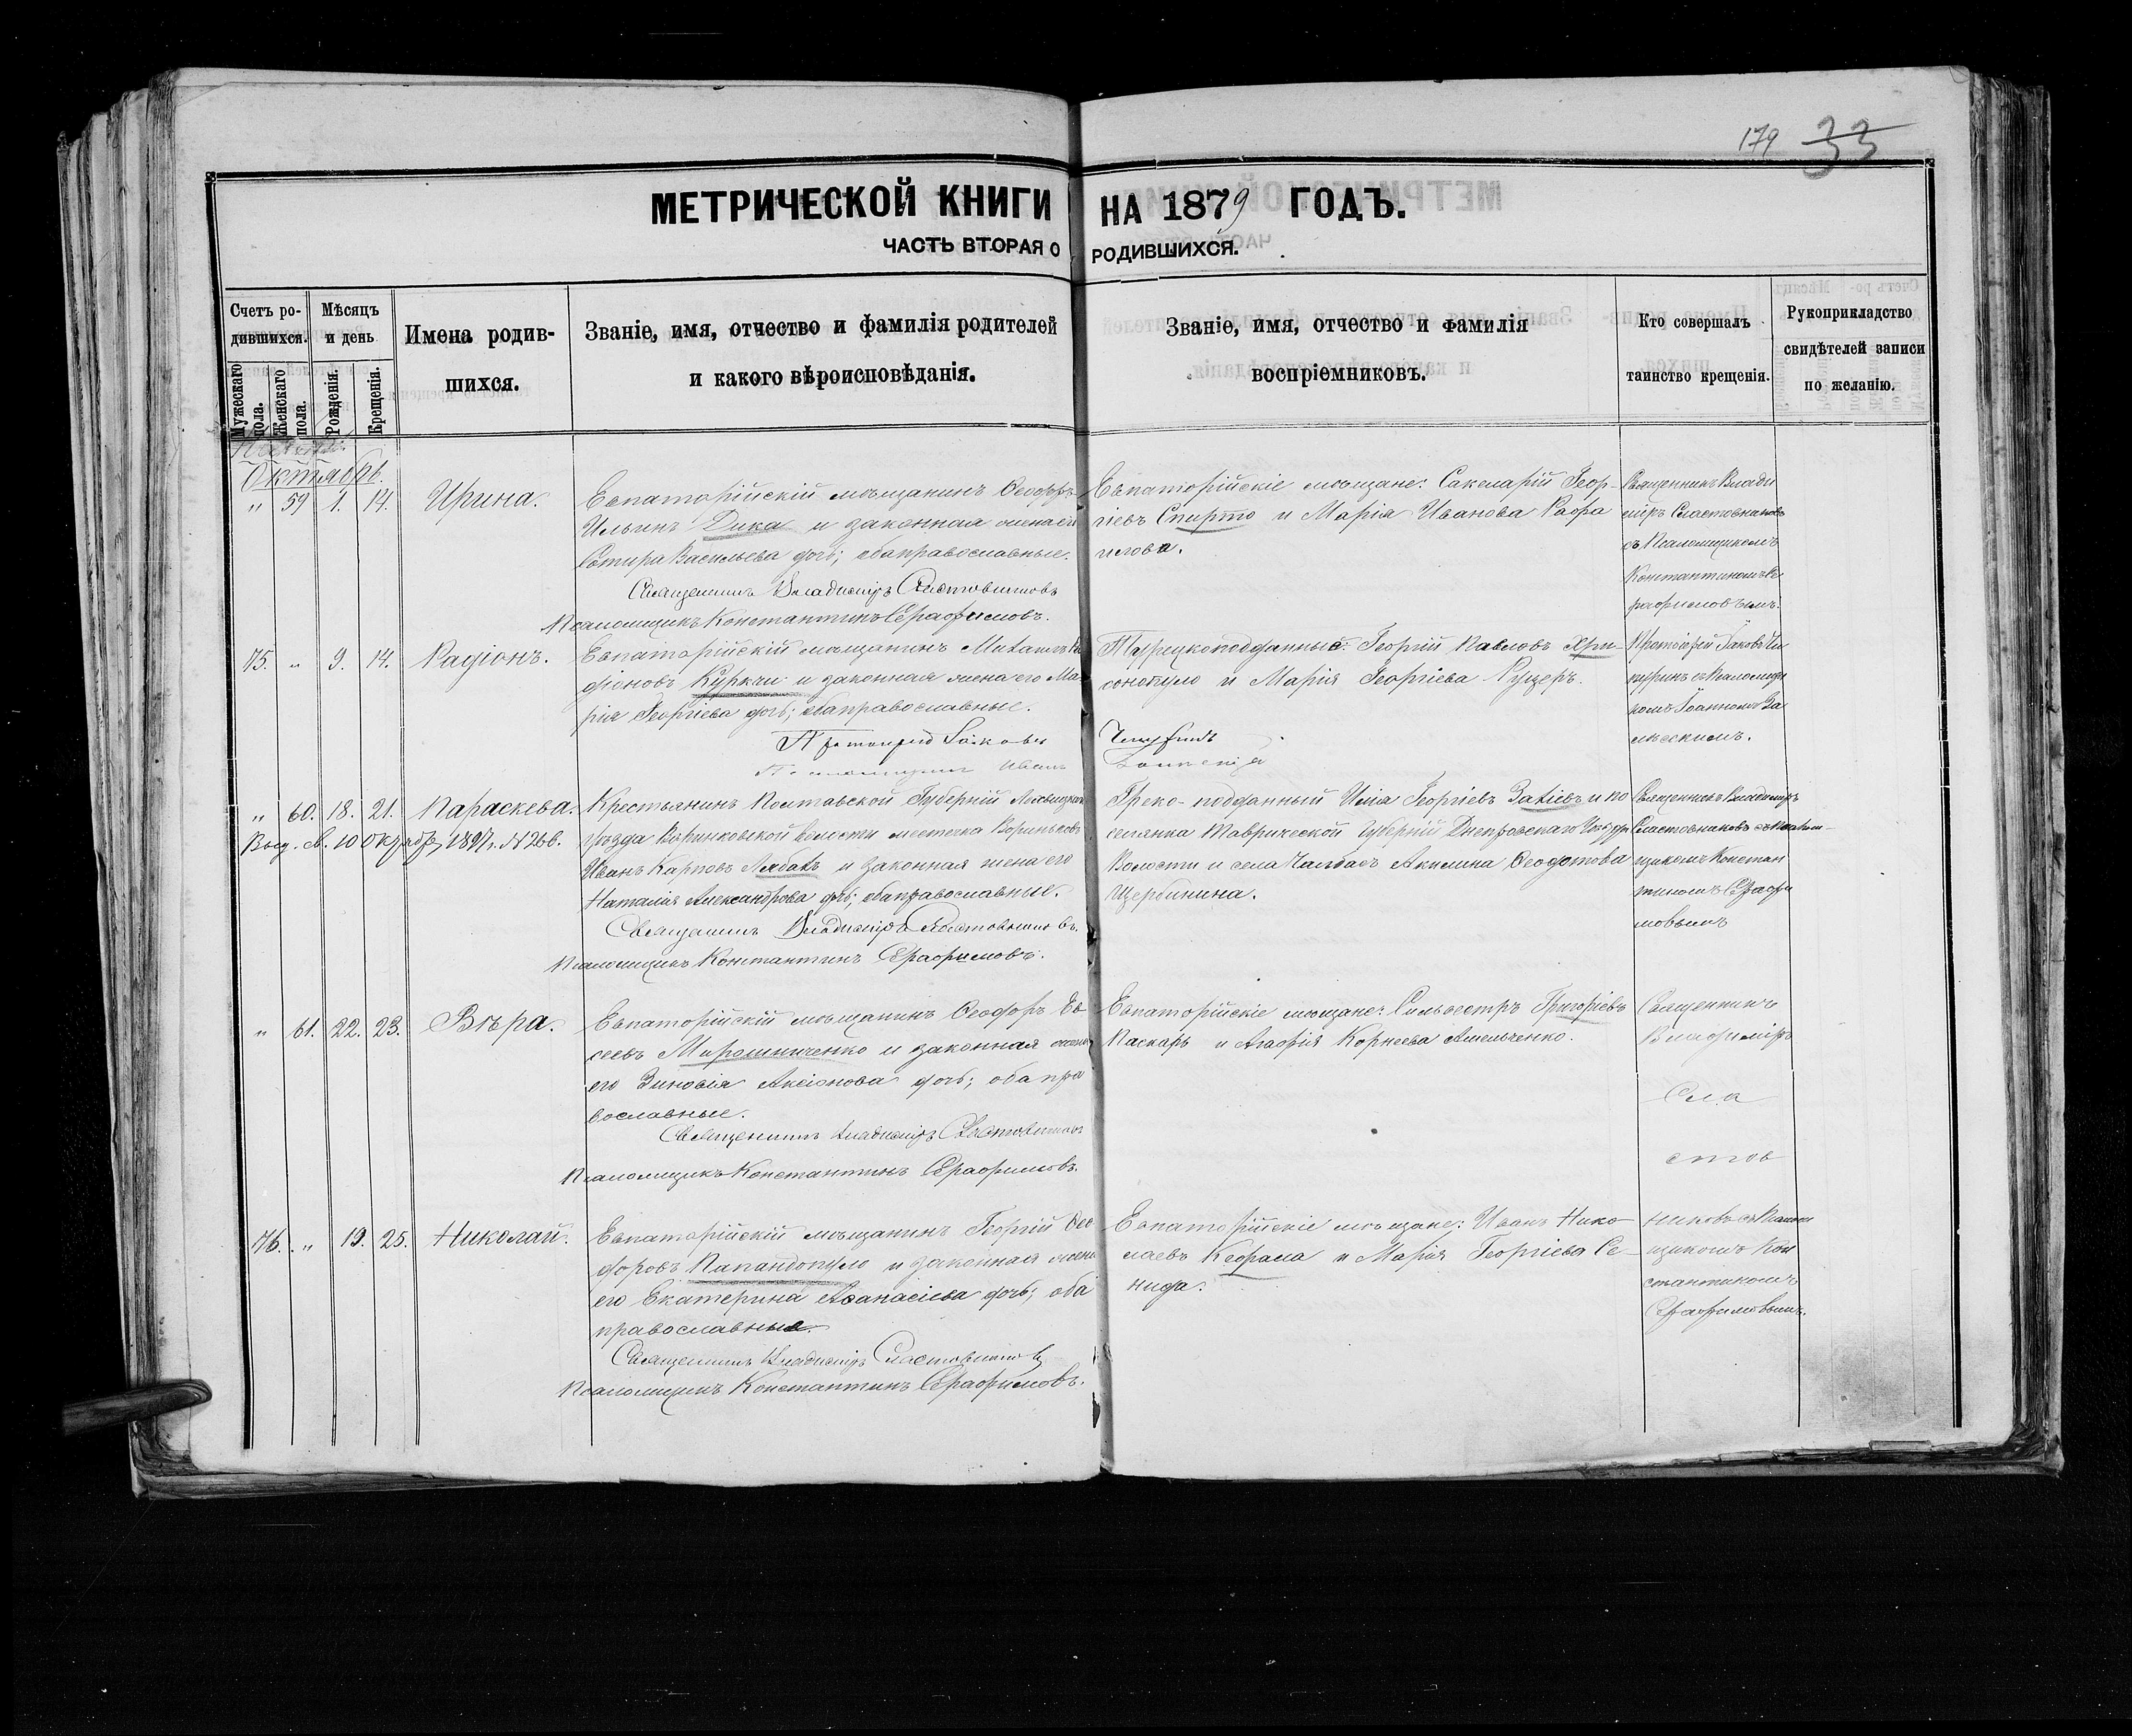 179 33
МЕТРИЧЕСКОЙ КНИГИ НА 1879 ГОДЪ.
ЧАСТЬ ВТОРАЯ О РОДИВШИХСЯ.
Счетъ ро-
дившихся.
Мужескаго
пола.
Женскаго
пола.
Мѣсяцъ
и день
Рожденія.
Крещенія.
Имена родив-
шихся.
Званіе, имя, отчество и фамилія родителей
и какого вѣроисповѣданія.
Званіе, имя, отчество и фамилія
воспріемниковъ.
Кто совершалъ
таинство крещенія.
Рукоприкладство
свидѣтелей записи
по желанію.
Октябрь.
" 59 1. 14. Ирина.
Евпаторійскій мѣщанинъ Ѳеодоръ
Ильинъ Дика и законная жена его
Сотира Васильева дочь; оба православные.
Священникъ Владиміръ Сластовниковъ
Псаломщикъ Константинъ Серафимовъ.
Евпаторійскіе мѣщане: Сакеларій Геор-
гіевъ Спирто и Марія Иванова Рафа
илова.
Священникъ Влади
міръ Сластовниковъ
съ Псаломщикомъ
Константиномъ Се
рафимовымъ.
75. " 9. 14. Радіонъ.
Евпаторійскій мѣщанинъ Михаилъ Ра
діоновъ Куркчи и законная жена его Ма
рія Георгіева дочь; оба православные.
Протоіерей Іаковъ Чепуринъ
Псаломщикъ Иванъ
Турецкоподданные: Георгій Павловъ Хри-
сонопуло и Марія Георгіева Кущеръ.
Протоіерей Іаковъ Че
пуринъ съ Псаломщи
комъ Іоанномъ За
лѣскимъ.
" 60. 18. 21. Параскева.
Выд. св. 10 Октябр 1897 г. № 266.
Крестьянинъ Полтавской Губерніи Лохвицкаго
уѣзда Воринковской волости местечка Воринковъ
Иванъ Карповъ Лябахъ и законная жена его
Наталія Александрова дочь; оба православные.
Священникъ Владиміръ Сластовниковъ.
Псаломщикъ Константинъ Серафимовъ.
Греко-подданный Илія Георгіевъ Затіевъ и по
селянка Таврической Губерніи Днепровскаго уѣзда
Волости и села Чалбасъ Акилина Ѳеодотова
Щербинина.
Священникъ Владиміръ
Сластовниковъ съ Псалом-
щикомъ Констан
тиномъ Серафи
мовымъ
" 61. 22. 23. Вѣра.
Евпаторійскій мѣщанинъ Ѳеодоръ Ев
сеевъ Мирошниченко и законная жена
его Зиновія Аксіонова дочь; оба пра
вославные.
Священникъ Владиміръ Сластовниковъ
Псаломщикъ Константинъ Серафимовъ.
Евпаторійскіе мѣщане: Сильвестръ Григоріевъ
Паскарь и Агафія Корнеева Амельченко.
Священникъ
Владиміръ
Сла
стов
76. " 19. 25. Николай.
Евпаторійскій мѣщанинъ Георгій Ѳео
доровъ Папандопуло и законная жена
его Екатерина Аѳанасіева дочь; оба
православные.
Священникъ Владиміръ Сластовниковъ
Псаломщикъ Константинъ Серафимовъ.
Евпаторійскіе мѣщане: Иванъ Нико
лаевъ Кефала и Марія Георгіева Се-
нида.
никовъ съ Псалом
щикомъ Кон
стантиномъ
Серафимовымъ.